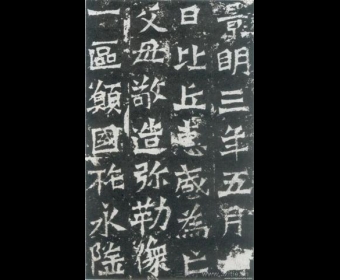 景明三年五月
日比丘惠感為亡
父母敬造弥勒像
一區願國祚永隆